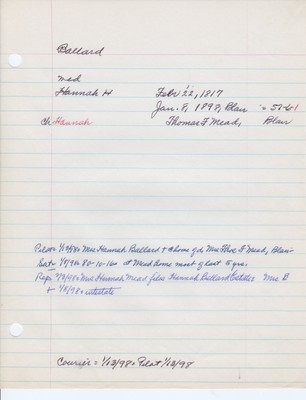 Ballard
med
Hannah H Febr 22, 1817
Jan. 8, 1898, Blair = 5-6-1
Ch Hannah Thomas F Mead, Blair
Pilot = 1/13/98 = Mrs Hannah Ballard + @ home of d Mrs Thos F Mead, Blair
Sat = 1/8/98 80-10-16 at Mead home most of last 15 yrs.
Rep = Mrs Hannah Mead files Hannah Ballard Estate Mrs B
+ 1/8/98 intestate
Courier = 1/13/98 = Pilot 1/13/98